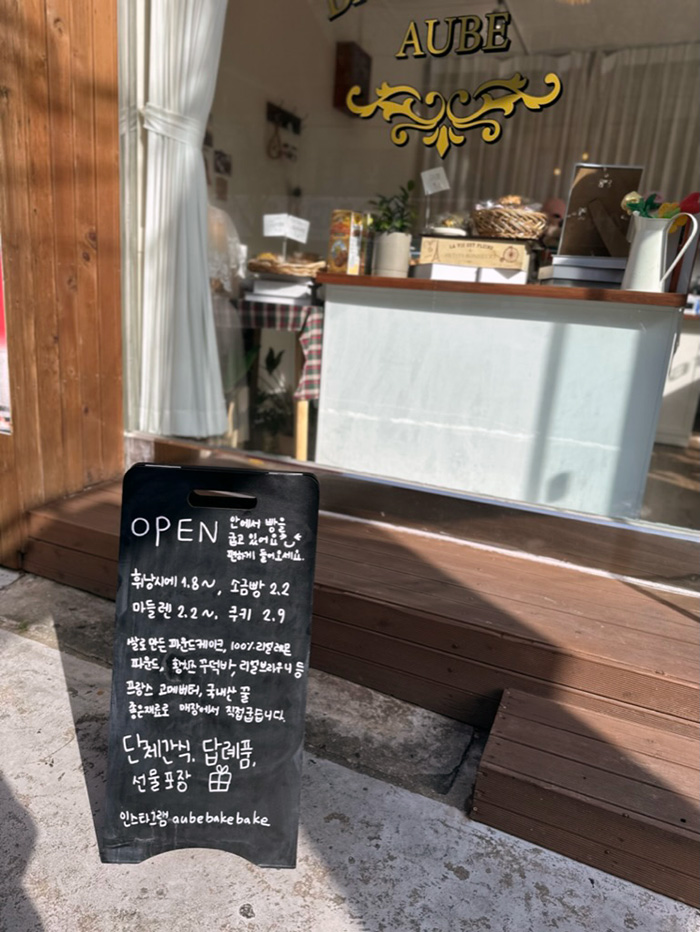 AUBE
LA VIE EST PLEINE
OPEN
안에서 빵을
굽고 있어요
편하게 들어오세요.
휘낭시에 1.8~, 소금빵 2.2
마들렌 2.2~, 쿠키 2.9
쌀로 만든 파운드케이크, 100% 리얼레몬
파운드, 황치즈 꾸덕바, 리얼브라우니 등
프랑스 고메버터, 국내산 꿀
좋은재료로 매장에서 직접굽습니다.
단체간식, 답례품,
선물포장
인스타그램 aubebakebake